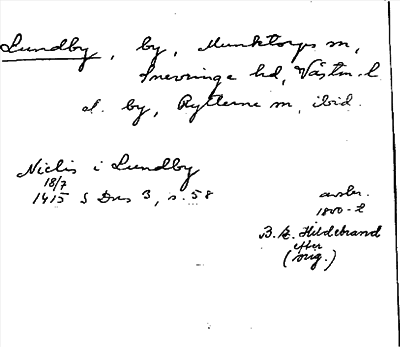 Lundby, by, Munktorps sn,
Snevringe hd, Västm. l.
el. by, Rytterne sn, ibid.
Niclis i Lundby
18/7
1415 S Dns 3, s. 58
avskr.
1800-t
B. E. Hildebrand
efter
(orig.)